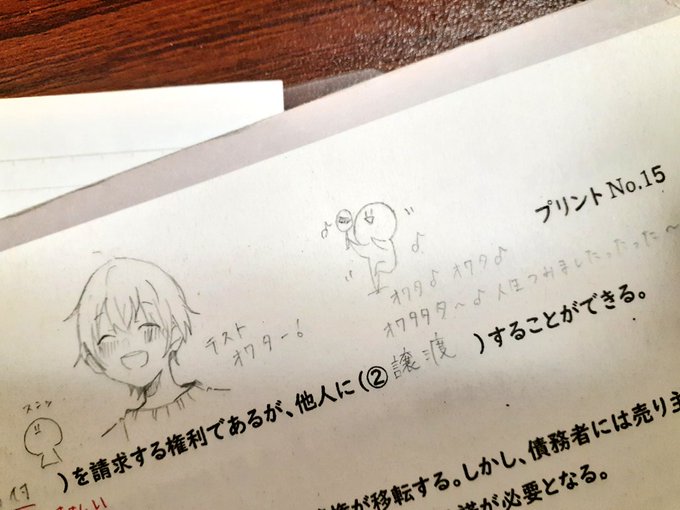 プリント No.15
♪ ♪
オワタ♪ オワタ♪
オワタタタ〜♪ 人生つみましたったった〜
テスト
オワター!
)を請求する権利であるが、他人に(②譲渡 )することができる。
権が移転する。しかし、債務者には売り主
が必要となる。